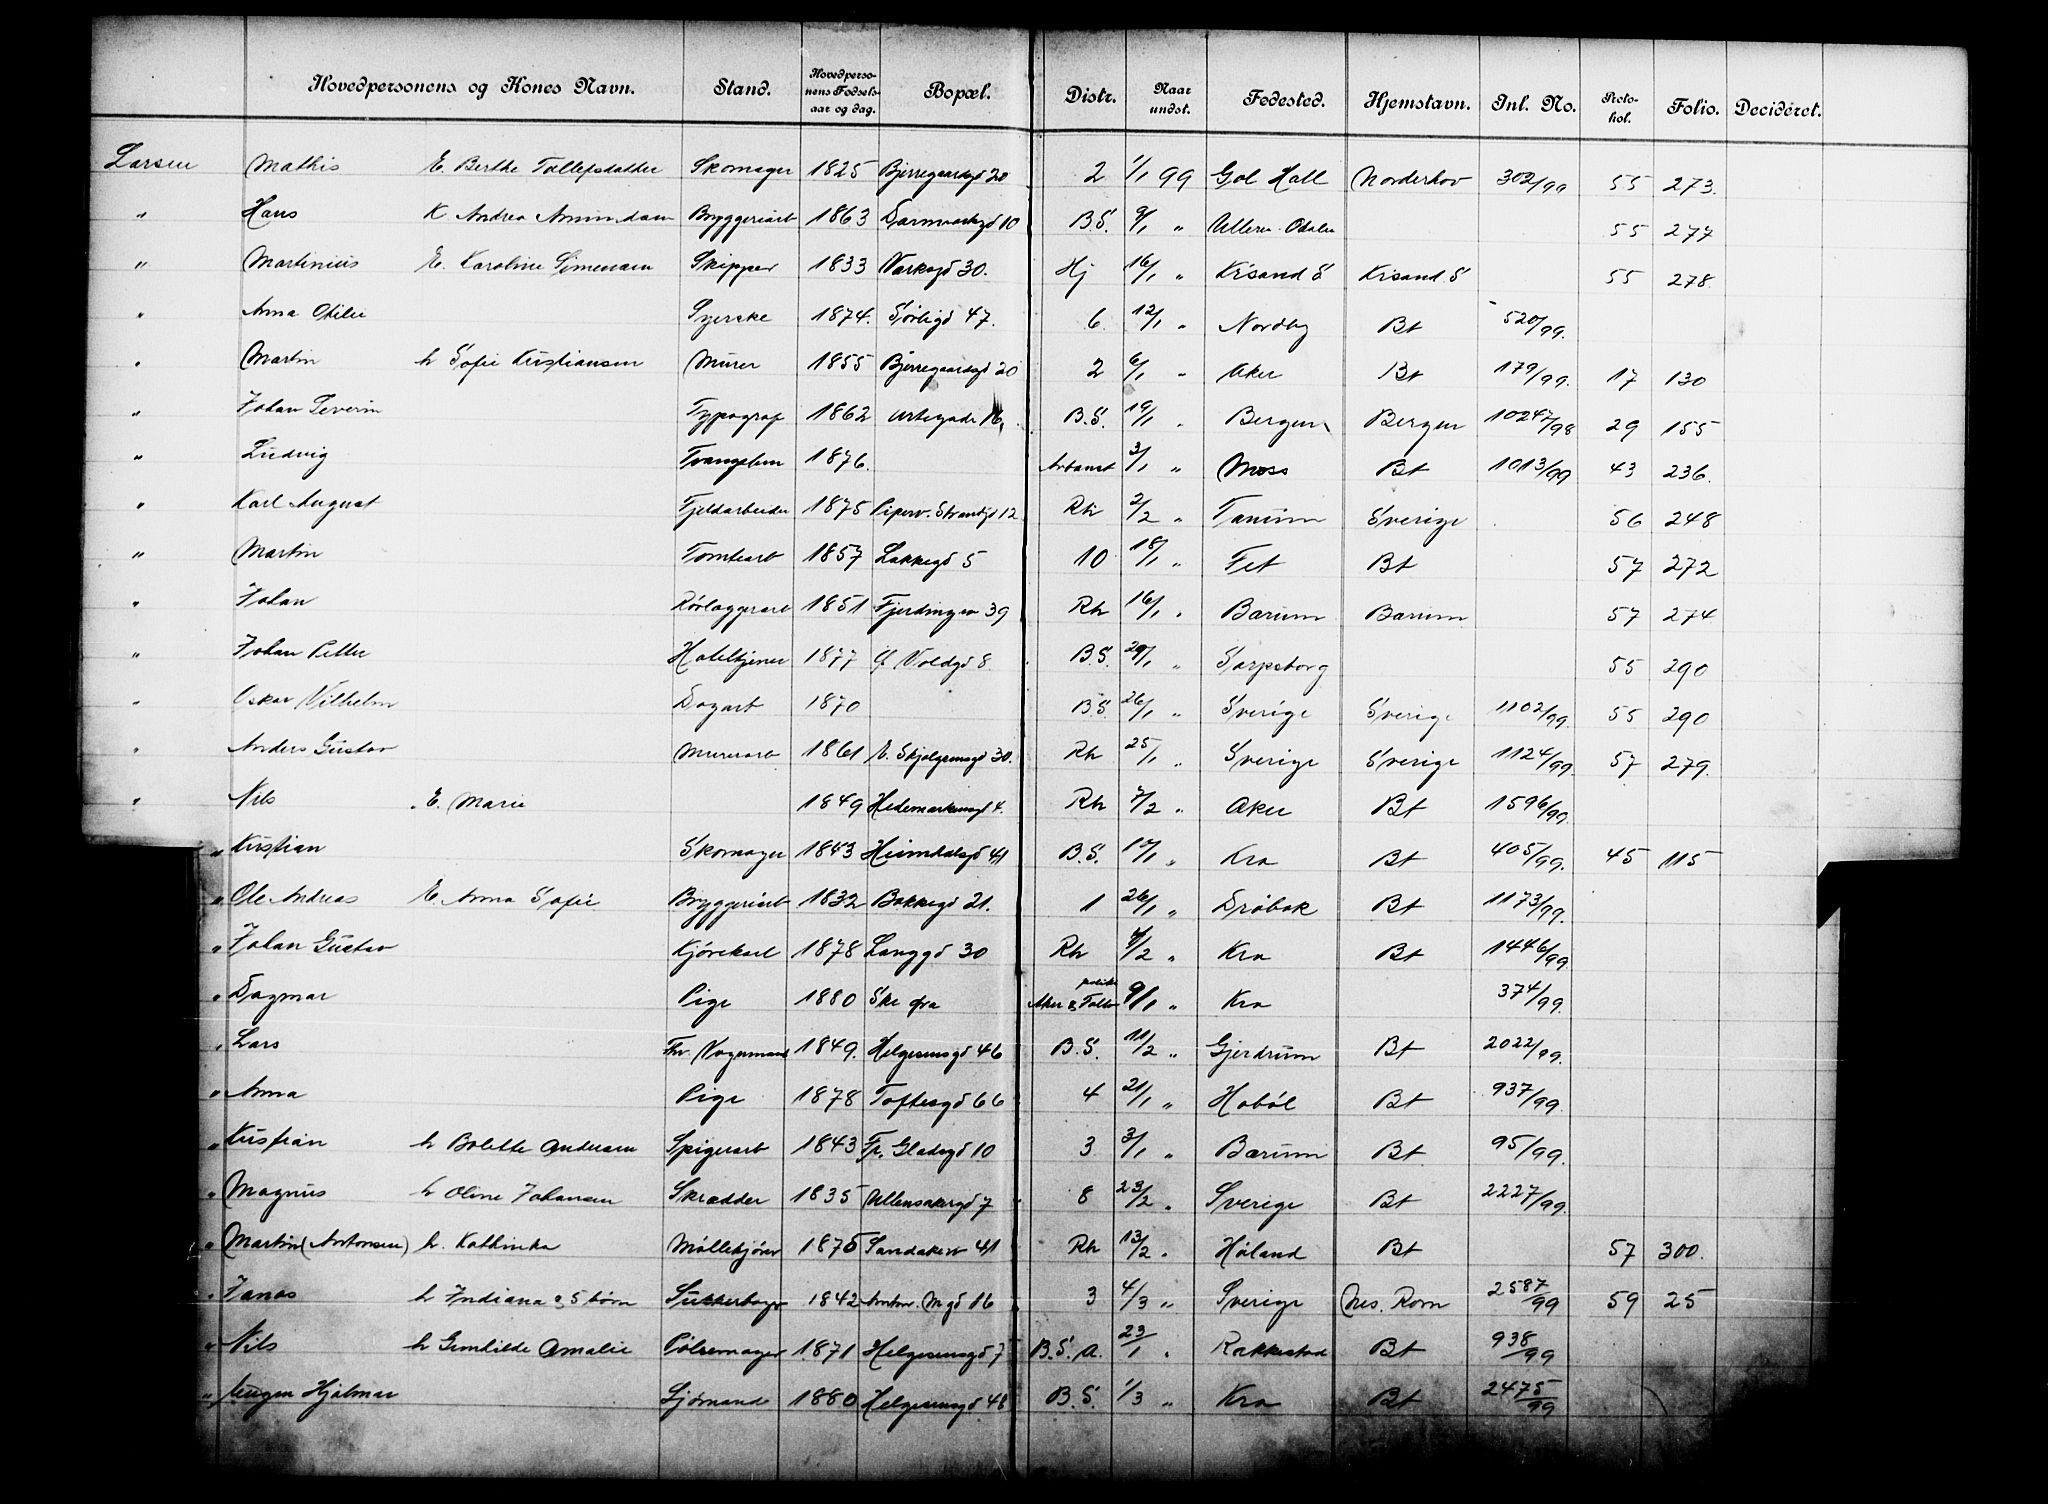 Hovedpersonens og Kones Navn. Stand. Hovedpersonens Fødselsaar og dag. Bopæl. Distr. Naar undst. Fødested. Hjemstavn. Inl. No. Protokol. Folio. Decideret.
Larsen Mathis E. Berthe Tollefsdatter Skomager 1825 Bjerregaardsgd 20 2 1/1 99 Gol Hall Norderhov 302/99 55 273.
" Hans K Andrea Amundsen Bryggeriarb 1863 10 B.S. 9/1 " Ullern Odalen 55 277
" Martinius E. Karoline Simensen Skipper 1833 Verksgd 30. Hj 16/1 " Krsand S Krsand S 55 278.
" Anna Otilie Syerske 1874. Sørligd 47. 6. 12/1 " Nordby Bt 520/99.
" Martin h Sofie Kristiansen Murer 1855 Bjerregaardsgd 20 2 6/1 " Aker Bt 179/99. 17 130
" Johan Severin Typograf 1862 Urtegade 16. B.S. 19/1 " Bergen Bergen 10247/98 29 155
" Ludvig Tvangslem 1876. Arbanst 3/1 " Moss Bt 1013/99 43 236.
" Karl August Fjeldarbeider 1875 Piperv. Strandgd 12 Rh 2/2 " Tanum Sverige 56 248
" Martin Tomtearb 1857 Lakkegd 5 10 18/1 " Fet Bt 57 272
" Johan Rørlæggerarb 1851 Fjerdingen 39 Rh 16/1 " Bærum Bærum 57 274
" Johan Petter Hoteltjener 1877 Ø Voldgd 8. B.S. 29/1 " Sarpsborg 55 290
" Oskar Vilhelm Dagarb 1870 B.S. 26/1 " Sverige Sverige 1102/99. 55 290
" Anders Gustav Murerarb 1861 E. Skjolgensgd 30. Rh 25/1 " Sverige Sverige 1124/99. 57 279.
" Nils E. Marie 1849 Hedemarkensgd 4. Rh 7/2 " Aker Bt 1596/99.
" Kristian Skomager 1843 Heimdalsgd 41 B.S. 10/1 " Kra Bt 405/99. 45 115
" Ole Andreas E. Anna Sofie Bryggeriarb 1832 Bakkegd 21. 1 26/1 " Drøbak Bt 1173/99.
" Johan Gustav Kjørekarl 1878 Langgd 30 Rh 4/2 " Kra Bt 1446/99.
" Dagmar Pige 1880 Ske Aker & Follo politi 9/1 " Kra 374/99.
" Lars Fhv. Vognmand 1849. Helgesensgd 46 B.S. 11/2 " Gjerdrum Bt 2022/99.
" Anna Pige 1878 Toftesgd 66 4 21/1 " Hobøl Bt 937/99.
" Kristian h Bolette Andersen Spigerarb 1843 Fr. Gladsgd 10 3 3/1 " Bærum Bt 95/99.
" Magnus h Oline Johansen Skrædder 1835 Ullensakergd 7 8 23/2 " Sverige Bt 2227/99.
" Martin (Antonsen) h. Kathinka Møllekjører 1875 Sandakerv 41 Rh 13/2 " Høland Bt 57 300.
" Janas h Indiana & 5 børn 1842 Anton. M gd 16 3 4/3 " Sverige Nes. Rom 2587/99 59 25
" Nils h Gunhilde Amalie Pølsemager 1871 Helgesensgd 7 B.S. A. 23/1 " Rakkestad Bt 938/99
" Jürgen Hjalmar Sjømand 1880 Helgesensgd 46 B.S. 1/3 " Kra Bt 2475/99